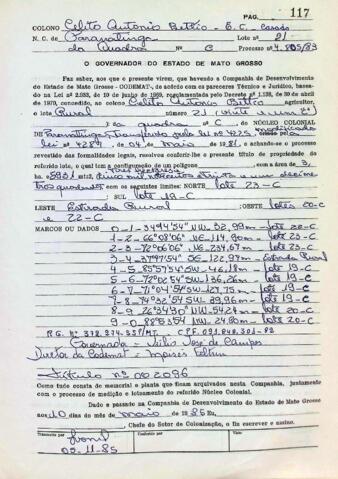 PAG. 117
COLONO Celito Antonio Bettio - E.C. Casado
N. C. de Paranatinga Lote nº 21
da Quadra Nº C Processo nº 4.905/83
O GOVERNADOR DO ESTADO DE MATO GROSSO
Faz saber, aos que a presente virem, que havendo a Companhia de Desenvolvimento
do Estado de Mato Grosso - CODEMAT-, de acordo com os pareceres Técnico e Jurídico, baseado
na Lei nº 2.083, de 10 de junho de 1969, regulamentada pelo Decreto nº 1.138, de 30 de abril
de 1970, concedido, no colono Celito Antonio Bettio agricultor,
o lote Rural nº 21 (vinte e um)
da quadra C do NÚCLEO COLONIAL
DE Paranatinga, transferido pela lei nº 4225, modificada
lei nº 4287 de 04 de maio de 1981, e achando-se o processo
revestido das formalidades legais, resolveu conferir-lhe o presente título de propriedade do
referido lote, o qual tem a configuração de um polígono com a área de
cinco mil novecentos e trinta e um
com os seguintes limites: NORTE lote 23-C
SUL lote 19-C
LESTE Estrada Rural OESTE lotes 20-C
e 22-C
MARCOS OU DADOS 0-1-34º41'54" NW 52,99m - lote 22-C
1-2-66º08'06" NE 114,90m - lote 23-C
2-3-72º06'06" NE 234,67m - lote 23-C
3-4-37º47'54" SE 122,97m - Estrada Rural
4-5-85º57'54" SW 46,18m - lote 19-C
5-6-72º02'54" SW 136,26m - lote 19-C
6-7-71º04'54" SW 127,75m - lote 19-C
7-8-74º32'54" SW 89,96m - lote 19-C
8-9-26º34'30" NW 54,24m - lote 20-C
9-0-88º53'54" NW 24,60m - lote 20-C
R.G. nº 378.274.SSP/MT. C.P.F. 091.048.301-82
Governador = Júlio José de Campos
Diretor da Codemat =
Título nº 002096
Como tudo consta do memorial e planta que ficam arquivados nesta Companhia, juntamente
com o processo de medição e loteamento do referido Núcleo Colonial.
Dado e passado na Companhia de Desenvolvimento do Estado de Mato Grosso
aos 10 dias do mês de maio de 1985 Eu,
Chefe do Setor de Colonização, o fiz escrever e assino.
Transcrito por Conferido por Visto
02-11-85